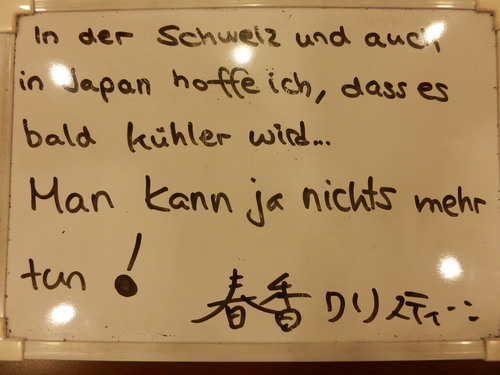 In der Schweiz und auch
in Japan hoffe ich, dass es
bald kühler wird...
Man kann ja nichts mehr
tun!
春香クリスティーン